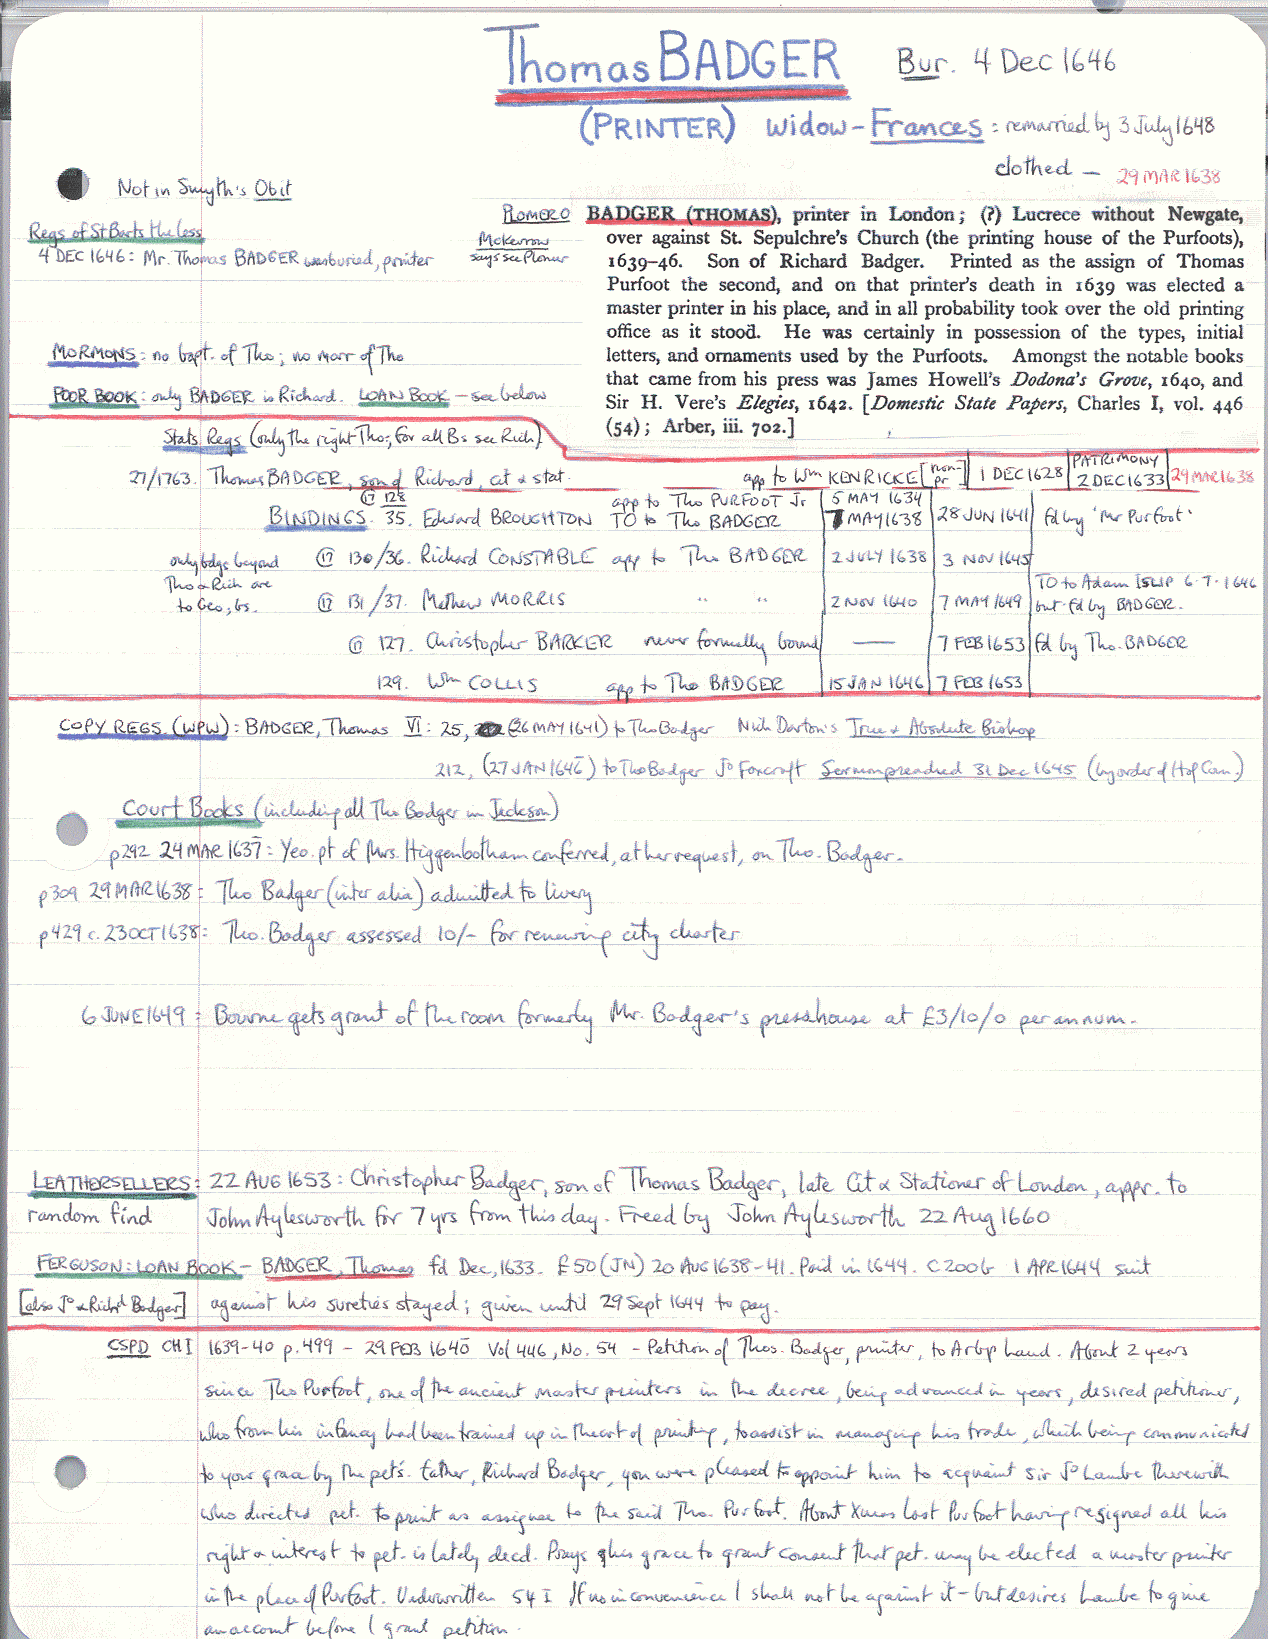 Thomas BADGER Bur. 4 Dec 1646
(PRINTER) widow - Frances : remarried by 3 July 1648
clothed — 29 MAR 1638
Not in Smyth's Obit
Regs of St Barts the less
4 DEC 1646: Mr. Thomas BADGER was buried, printer
PLOMER
McKerrow
says see Plomer
BADGER (THOMAS), printer in London; (?) Lucrece without Newgate,
over against St. Sepulchre's Church (the printing house of the Purfoots),
1639-46. Son of Richard Badger. Printed as the assign of Thomas
Purfoot the second, and on that printer's death in 1639 was elected a
master printer in his place, and in all probability took over the old printing
office as it stood. He was certainly in possession of the types, initial
letters, and ornaments used by the Purfoots. Amongst the notable books
that came from his press was James Howell's Dodona's Grove, 1640, and
Sir H. Vere's Elegies, 1642. [Domestic State Papers, Charles I, vol. 446
(54); Arber, iii. 702.]
MORMONS: no bapt. of Tho; no marr of Tho
POOR BOOK: only BADGER is Richard. LOAN BOOK - see below
Stats Regs (only the right Tho; for all Bs see Rich)
27/1763. Thomas BADGER, son of Richard, cit & stat. app to Wm KENRICKE [non-pr] 1 DEC 1628 PATRIMONY 2 DEC 1633 29 MAR 1638
128 app to Tho PURFOOT Jr 5 MAY 1634
BINDINGS 35. Edward BROUGHTON TO to Tho BADGER 7 MAY 1638 28 JUN 1641 fd by 'Mr Purfoot'
only bdgs beyond
Tho & Rich are
to Geo, bs.
130/36. Richard CONSTABLE app to Tho BADGER 2 JULY 1638 3 NOV 1645
131/37. Mathew MORRIS " " 2 NOV 1640 7 MAY 1649 TO to Adam ISLIP 6.7.1646 but fd by BADGER.
127. Christopher BARKER never formally bound — 7 FEB 1653 fd by Tho. BADGER
129. Wm COLLIS app to Tho BADGER 15 JAN 1646 7 FEB 1653
COPY REGS (WPW): BADGER, Thomas VI: 25, (26 MAY 1641) to Tho Badger Nich Darton's True & Absolute Bishop
212, (27 JAN 1645) to Tho Badger Jo Foxcroft Sermon preached 31 Dec 1645 (by order of H of Com.)
Court Books (including all Tho Badger in Jackson)
p292 24 MAR 1637: Yeo. pt of Mrs. Higgenbotham conferred, at her request, on Tho. Badger.
p309 29 MAR 1638: Tho Badger (inter alia) admitted to livery
p429 c. 23 OCT 1638: Tho. Badger assessed 10/- for renewing city charter
6 JUNE 1649: Bourne gets grant of the room formerly Mr. Badger's presshouse at £3/10/0 per annum.
LEATHERSELLERS: 22 AUG 1653: Christopher Badger, son of Thomas Badger, late Cit & Stationer of London, appr. to
random find John Aylesworth for 7 yrs from this day. Freed by John Aylesworth 22 Aug 1660
FERGUSON: LOAN BOOK - BADGER, Thomas fd Dec, 1633. £50 (JN) 20 AUG 1638-41. Paid in 1644. C200b 1 APR 1644 suit
[also Jo & Richd Badger] against his sureties stayed; given until 29 Sept 1644 to pay.
CSPD CH I 1639-40 p.499 - 29 FEB 1640 Vol 446, No. 54 - Petition of Thos. Badger, printer, to Arbp Laud. About 2 years
since Tho Purfoot, one of the ancient master printers in the decree, being advanced in years, desired petitioner,
who from his infancy had been trained up in the art of printing, to assist in managing his trade, which being communicated
to your grace by the pet's. father, Richard Badger, you were pleased to appoint him to acquaint Sir Jo Lambe therewith
who directed pet. to print as assignee to the said Tho. Purfoot. About Xmas last Purfoot having resigned all his
right & interest to pet. is lately decd. Prays his grace to grant consent that pet. may be elected a master printer
in the place of Purfoot. Underwritten 54 I If no inconvenience I shall not be against it - but desires Lambe to give
an account before I grant petition.